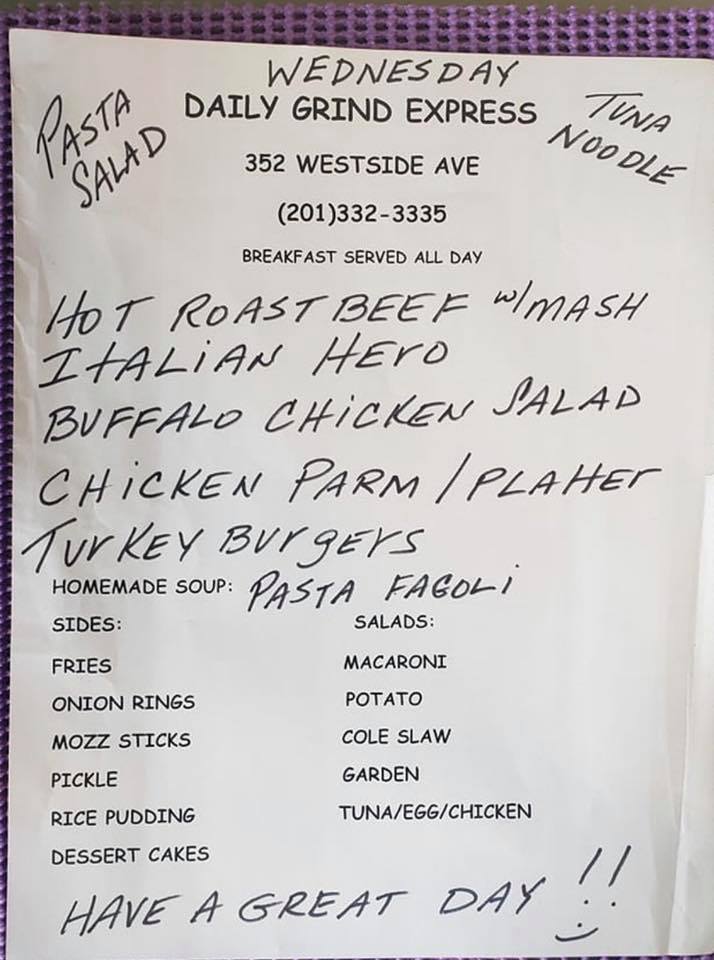 WEDNESDAY
PASTA
SALAD
DAILY GRIND EXPRESS
TUNA
NOODLE
352 WESTSIDE AVE
(201)332-3335
BREAKFAST SERVED ALL DAY
HOT ROAST BEEF w/MASH
ITALIAN HERO
BUFFALO CHICKEN SALAD
CHICKEN PARM/PLATTER
TURKEY BURGERS
HOMEMADE SOUP: PASTA FAGOLI
SIDES: SALADS:
FRIES MACARONI
ONION RINGS POTATO
MOZZ STICKS COLE SLAW
PICKLE GARDEN
RICE PUDDING TUNA/EGG/CHICKEN
DESSERT CAKES
HAVE A GREAT DAY !!